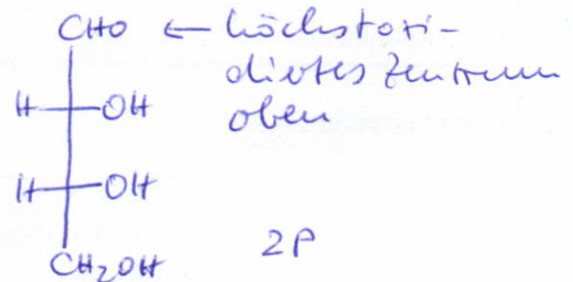 CHO ← höchstoxi-
diertes Zentrum
H OH oben
H OH
2P
CH₂OH